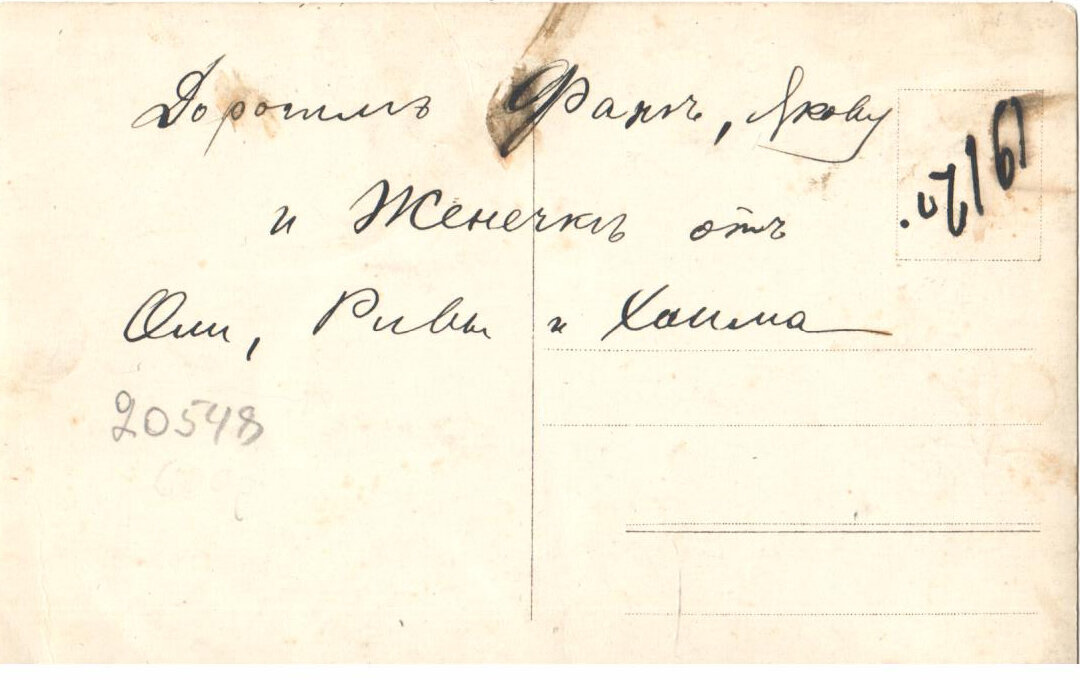 Дорогимъ Фанѣ, Якову
и Женечкѣ отъ
Оли, Ривы и Хаима
20548